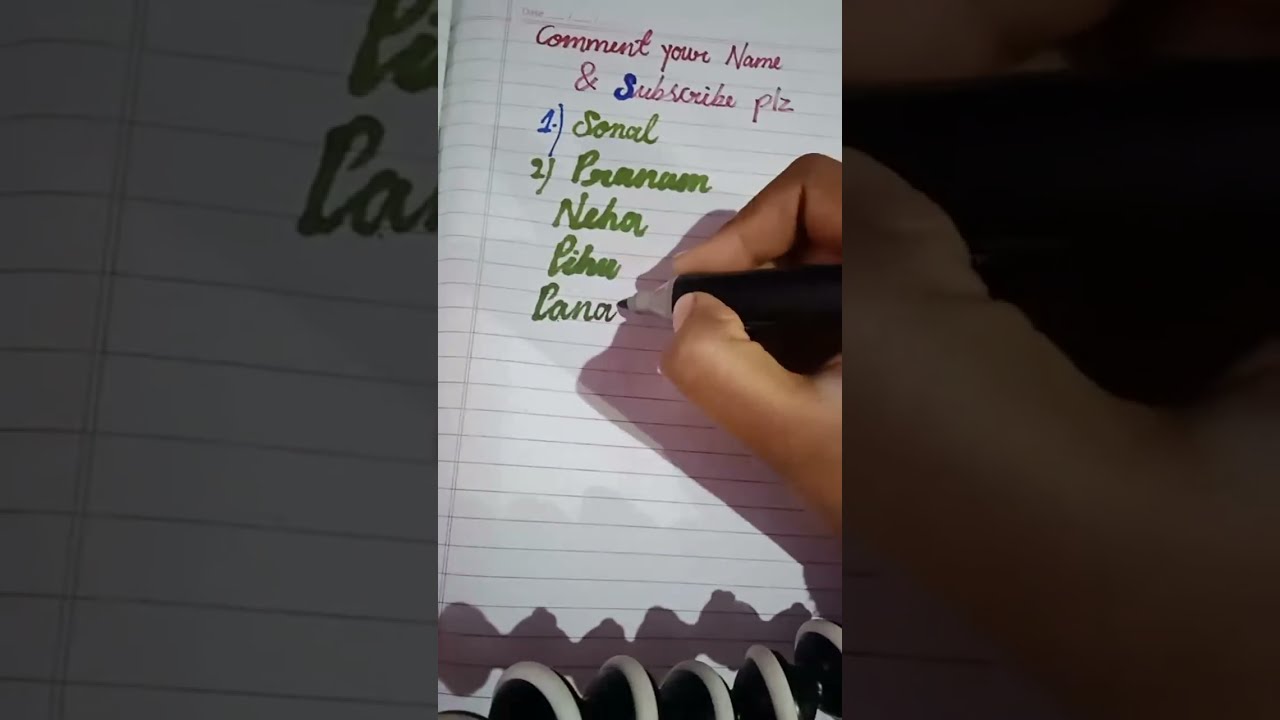 Date
Comment your Name
& Subscribe plz
1.) Sonal
2) Pranam
Neha
Pihu
Pana